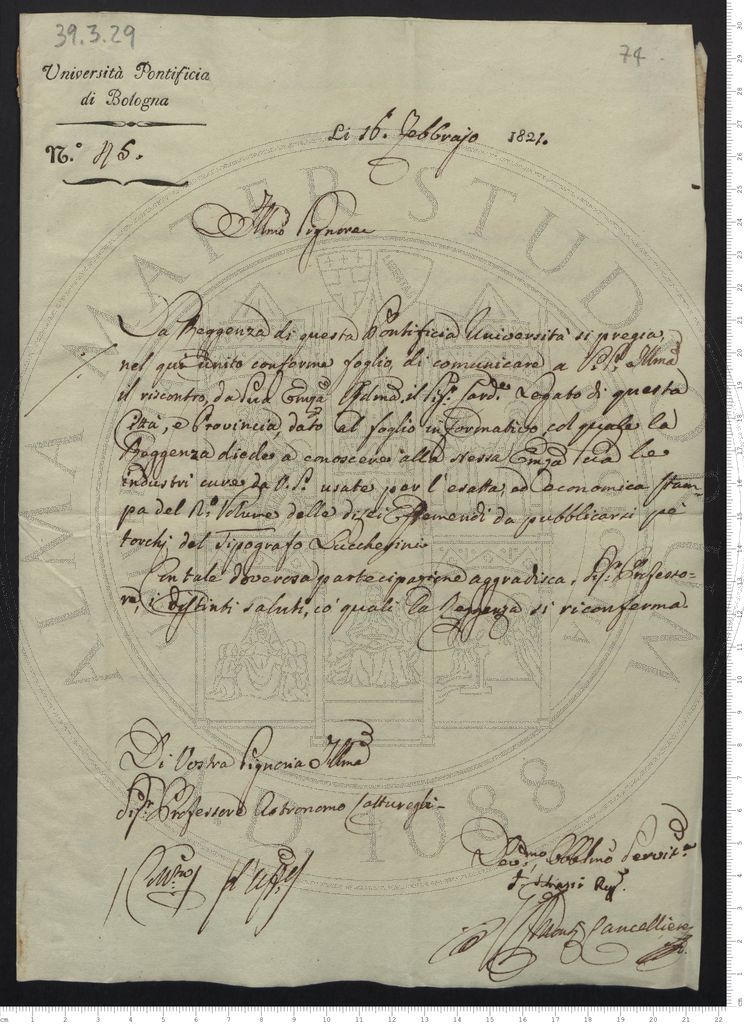 39.3.29
74
Università Pontificia
di Bologna
N.º 45.
Li 16. Febbrajo 1821.
Illmo Signore
La Reggenza di questa Pontificia Università si pregia,
nel quì unito conforme foglio, di comunicare a V.S. Illma
il riscontro, da Sua Emza Rdma. il Sig. Card.e Legato di questa
Città, e Provincia, dato al foglio informativo col quale la
Reggenza diede a conoscere alla stessa Emza Sua le
industri cure da V.S. usate per l'esatta, ed economica stam-
pa del Volume delle di lei Effemeridi da pubblicarsi pe'
torchj del Tipografo Lucchesini.
In tale doverosa partecipazione aggradisca, Sig. Professo=
re, i distinti saluti, co' quali la Reggenza si riconferma
Di Vostra Signoria Illma
Sig. Professore Astronomo Caturegli
Devmo Obblmo Servit.e
Reg.
Cancelliere
ALMA MATER STUDIORUM
A.D. 1088
LIBERTAS
cm 1 2 3 4 5 6 7 8 9 10 11 12 13 14 15 16 17 18 19 20 21 22